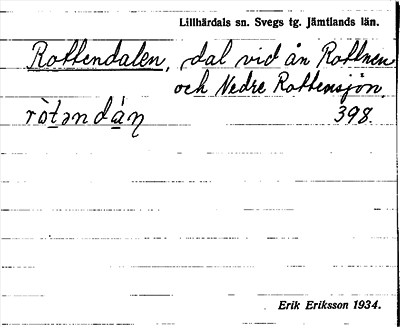 Lillhärdals sn. Svegs tg. Jämtlands län.
Rottendalen, dal vid ån Rottnen
och Nedre Rottensjön.
ròtəndáɳ 398.
Erik Eriksson 1934.